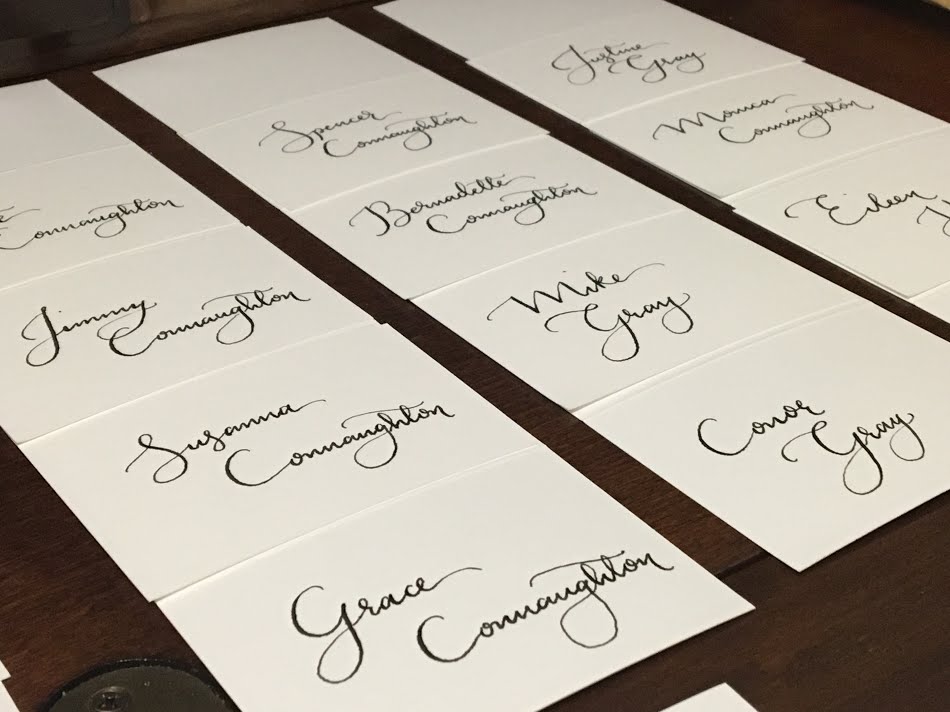 Connaughton
Jimmy
Connaughton
Susanna
Connaughton
Grace
Connaughton
Spencer
Connaughton
Bernadette
Connaughton
Mike
Gray
Conor
Gray
Justine
Gray
Monica
Connaughton
Eileen